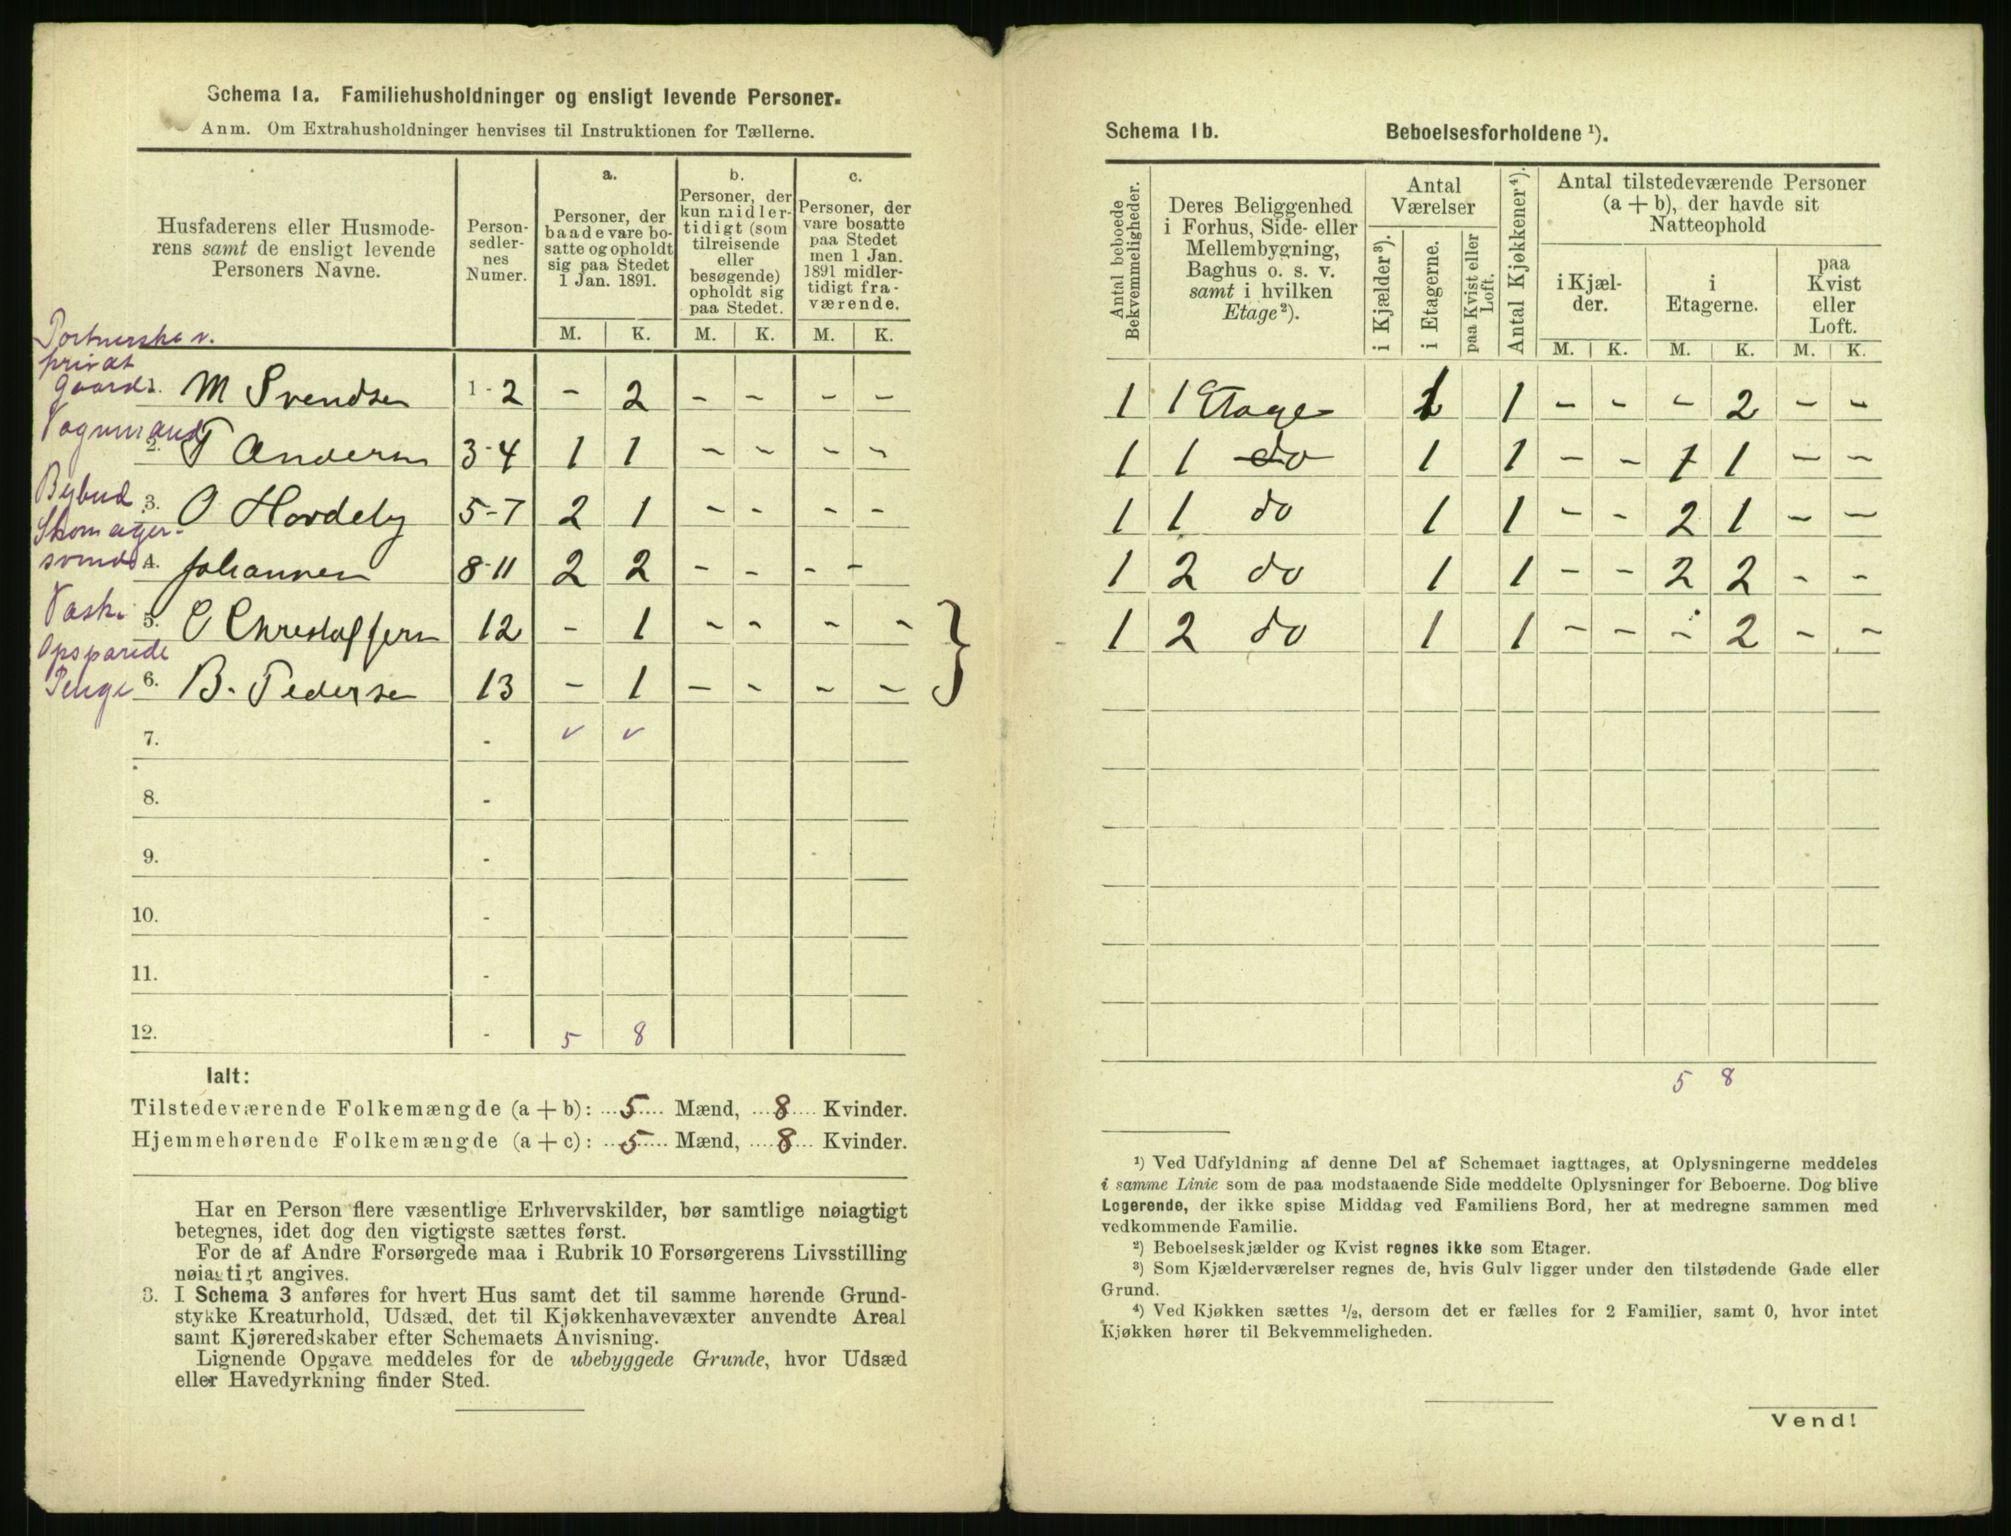 Schema 1a. Familiehusholdninger og ensligt levende Personer.
Anm. Om Extrahusholdninger henvises til Instruktionen for Tællerne.
Husfaderens eller Husmoderens samt de ensligt levende Personers Navne.
Person-sedler-nes Numer.
a. Personer, der baade vare bosatte og opholdt sig paa Stedet 1 Jan. 1891.
b. Personer, der kun midlertidigt (som tilreisende eller besøgende) opholdt sig paa Stedet.
c. Personer, der vare bosatte paa Stedet men 1 Jan. 1891 midlertidigt fraværende.
M. K. M. K. M. K.
Portnerske v.
privat
Gaard
M Svendsen 1-2 - 2 - - - -
Vognmand
2. T Andersen 3-4 1 1 - - - -
Bybud
3. O Hordeby 5-7 2 1 - - - -
Skomager-
svend
4. Johannesen 8-11 2 2 - - - -
Vask
5. C Christoffersen 12 - 1 - - - -
Opsparede
Penge
6. B. Pedersen 13 - 1 - - - -
7. - v v
8. -
9. -
10. -
11. -
12. - 5 8
Ialt:
Tilstedeværende Folkemængde (a + b): 5 Mænd, 8 Kvinder.
Hjemmehørende Folkemængde (a + c): 5 Mænd, 8 Kvinder.
Har en Person flere væsentlige Erhvervskilder, bør samtlige nøiagtigt
betegnes, idet dog den vigtigste sættes først.
For de af Andre Forsørgede maa i Rubrik 10 Forsørgerens Livsstilling
nøiagtigt angives.
3. I Schema 3 anføres for hvert Hus samt det til samme hørende Grund-
stykke Kreaturhold, Udsæd, det til Kjøkkenhavevæxter anvendte Areal
samt Kjøreredskaber efter Schemaets Anvisning.
Lignende Opgave meddeles for de ubebyggede Grunde, hvor Udsæd
eller Havedyrkning finder Sted.
Schema 1b. Beboelsesforholdene ¹).
Antal beboede Bekvemmeligheder.
Deres Beliggenhed i Forhus, Side- eller Mellembygning, Baghus o. s. v. samt i hvilken Etage²).
Antal Værelser
i Kjælder³).
i Etagerne.
paa Kvist eller Loft.
Antal Kjøkkener⁴).
Antal tilstedeværende Personer (a + b), der havde sit Natteophold
i Kjælder.
i Etagerne.
paa Kvist eller Loft.
M. K. M. K. M. K.
1 1 Etage 1 1 - - - 2 - -
1 1 do 1 1 - - 1 1 - -
1 1 do 1 1 - - 2 1 - -
1 2 do 1 1 - - 2 2 - -
1 2 do 1 1 - - - 2 - -
5 8
¹) Ved Udfyldning af denne Del af Schemaet iagttages, at Oplysningerne meddeles
i samme Linie som de paa modstaaende Side meddelte Oplysninger for Beboerne. Dog blive
Logerende, der ikke spise Middag ved Familiens Bord, her at medregne sammen med
vedkommende Familie.
²) Beboelseskjælder og Kvist regnes ikke som Etager.
³) Som Kjælderværelser regnes de, hvis Gulv ligger under den tilstødende Gade eller
Grund.
⁴) Ved Kjøkken sættes ½, dersom det er fælles for 2 Familier, samt 0, hvor intet
Kjøkken hører til Bekvemmeligheden.
Vend!